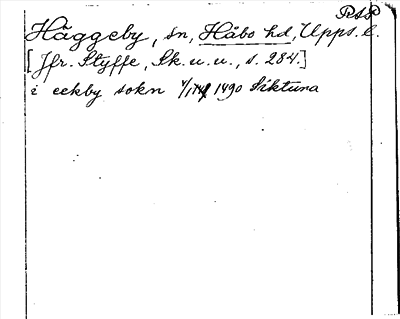 RSS
Häggeby, sn, Håbo hd, Upps. l.
[Jfr. Styffe, Sk. u. u., s. 284.]
i eckby sokn 1490 Siktuna